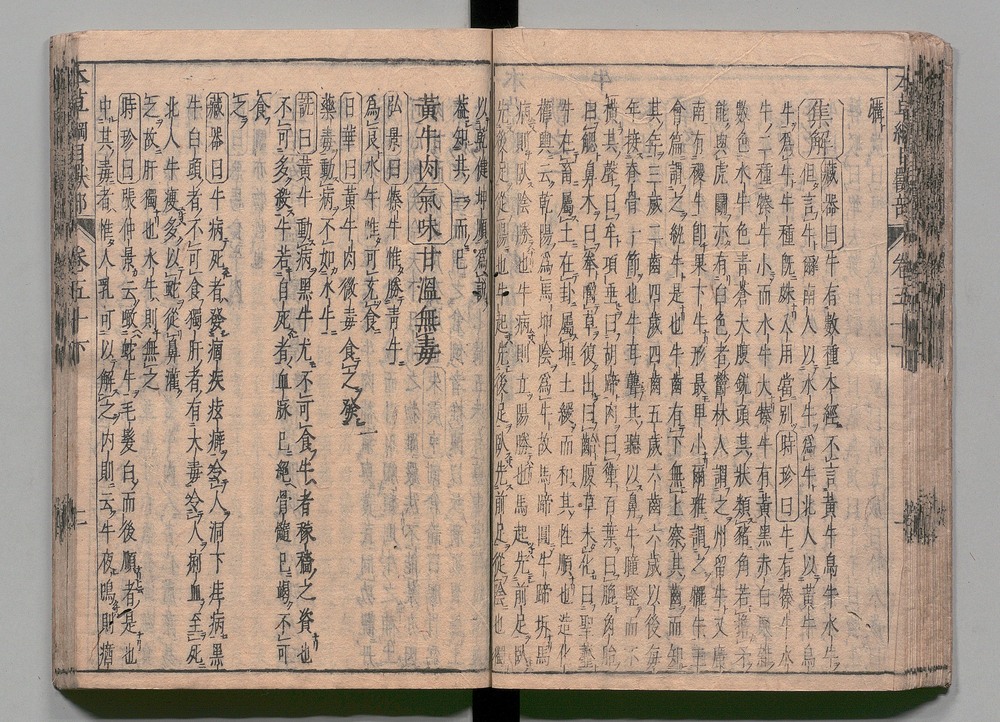 犝
集解 藏器曰牛有數種本經不言黃牛烏牛水牛
但言牛爾南人以水牛爲牛北人以黃牛烏
牛爲牛牛種旣殊入用當別 時珍曰牛有㹇牛水
牛二種㹇牛小而水牛大㹇牛有黃黑赤白駁雜
數色水牛色青蒼大腹銳頭其狀類豬角若擔矛
能與虎鬭亦有白色者鬱林人謂之州留牛又廣
南有稷牛卽果下牛形最卑小爾雅謂之犤牛
會篇謂之紈牛是也牛齒有下無上察其齒而知
其年三歲二齒四歲四齒五歲六齒六歲以後每
年接脊骨一節也牛耳聾其聽以鼻牛瞳豎而不
橫其聲曰牟項垂曰胡蹄肉曰百葉曰膍角胎
曰䚡鼻木曰嚼草復出曰齝腹草未化曰聖虀
牛在畜屬土在卦屬坤土緩而和其性順也造化
權輿云乾陽爲馬坤陰爲牛故馬蹄圓牛蹄坼馬
病則臥陰勝也牛病則立陽勝也馬起先前足臥
先後足從陽也牛起先後足臥先前足從陰也獨
以乾健坤順爲說
蓋知其一而已
黃牛肉 氣味 甘溫無毒
弘景曰㹇牛惟勝青牛
爲良水牛惟可充食
日華曰黃牛肉微毒食之發
藥毒動病不如水牛
詵曰黃牛動病黑牛尤不可食牛者稼穡之資也
不可多殺牛若自死者血脈已絕骨髓已竭不可
食之
藏器曰牛病死者發痼疾痃癖令人洞下疰病黑
牛白頭者不可食獨肝者有大毒令人痢血至死
北人牛瘦多以蛇從鼻灌
之故肝獨也水牛則無之
時珍曰張仲景云啖蛇牛毛髮白而後順者是也
中其毒者惟人乳可以解之內則云牛夜鳴則㾞
本草綱目獸部 卷五十下